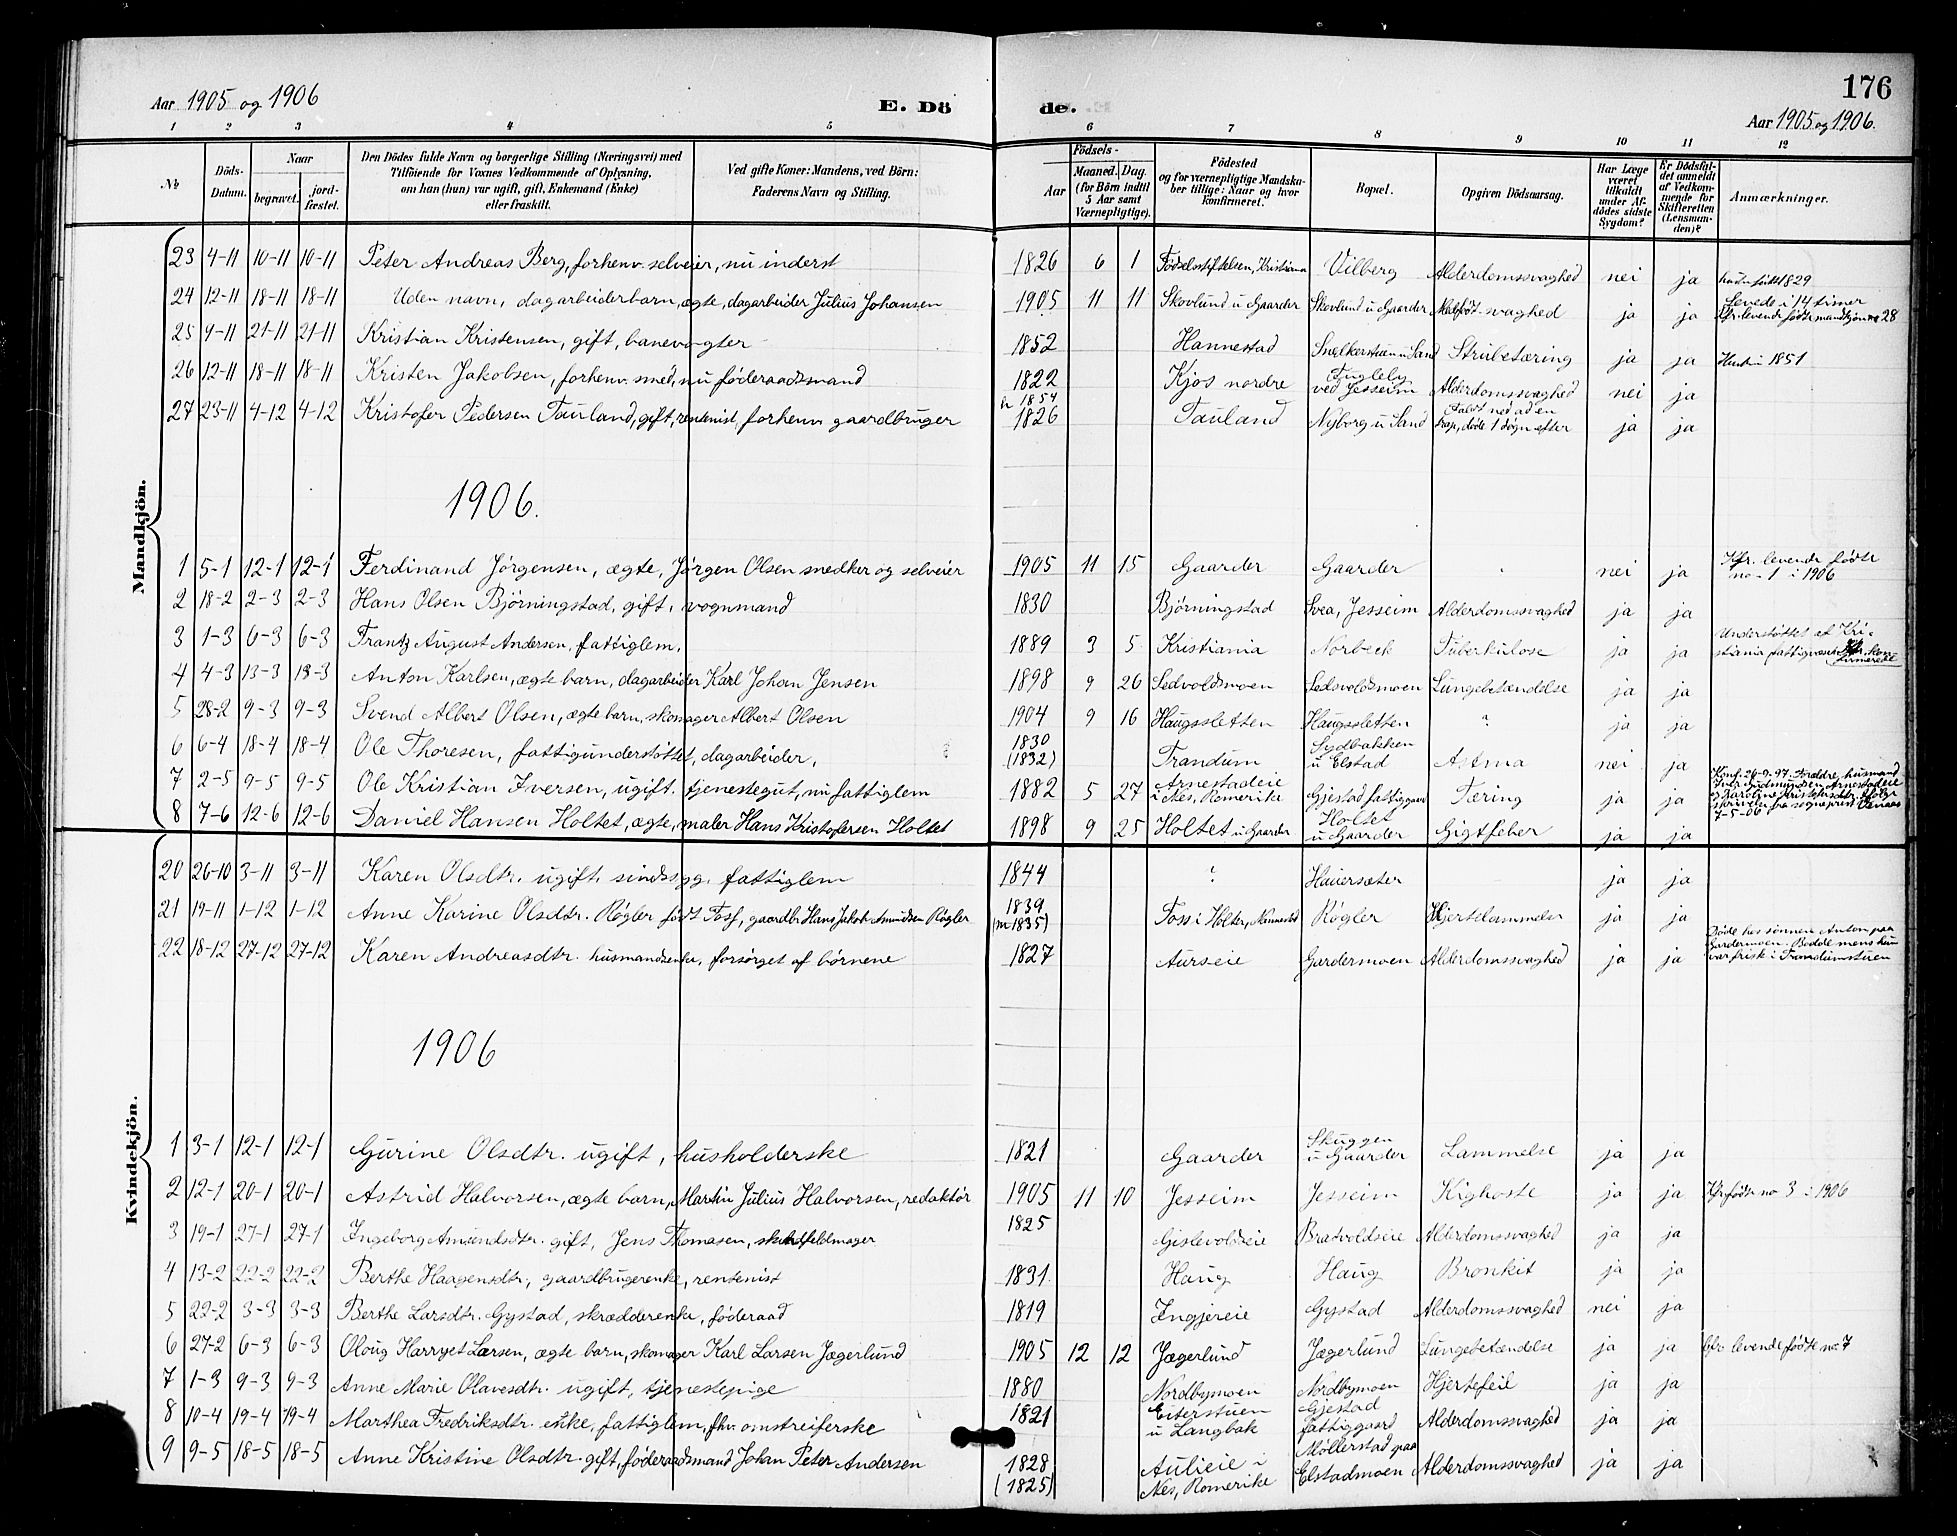 176
Aar 1905 og 1906
E. Dö
de.
Aar 1905 og 1906.
1 2 3 4 5 6 7 8 9 10 11 12
№
Döds-Datum.
Naar
begravet.
jord-fæstet.
Den Dödes fulde Navn og borgerlige Stilling (Næringsvei) med
Tilföiende for Voxnes Vedkommende af Oplysning,
om han (hun) var ugift, gift, Enkemand (Enke)
eller fraskilt.
Ved gifte Koner: Mandens, ved Börn:
Faderens Navn og Stilling.
Födsels-
Aar
Maaned. Dag.
(for Börn indtil
5 Aar samt
Værnepligtige).
Födested
og for værnepligtige Mandska-
ber tillige: Naar og hvor
konfirmeret.
Bopæl.
Opgiven Dödsaarsag.
Har Læge
været
tilkaldt
under Af-
dödes sidste
Sygdom?
Er Dödsfal-
det anmeldt
af Vedkom-
mende for
Skifteretten
(Lensman-
den)?
Anmærkninger.
Mandkjön.
23 4-11 10-11 10-11 Peter Andreas Berg, forhenv. selveier, nu inderst 1826 6 1 Fødselsstiftelsen, Kristiania Vilberg Alderdomssvaghed nei ja født 1829
24 12-11 18-11 18-11 Uden navn, dagarbeiderbarn, ægte, dagarbeider Julius Johansen 1905 11 11 Skovlund u Gaarder Skovlund u Gaarder Medfødt svaghed ja ja Levede i 14 timer
Cfr. levende fødte mandkjøn no 28
25 4-11 21-11 21-11 Kristian Kristensen, gift, banevogter 1852 Hannestad Snelkerstuen u Sand Strubetæring ja ja 1851
26 12-11 18-11 18-11 Kristen Jakobsen, forhenv. smed, nu føderaadsmand 1822 Kjos nordre Fugleby
ved Jesseim Alderdomssvaghed nei ja
27 23-11 4-12 4-12 Kristofer Pedersen Tauland, gift, rentenist, forhenv. gaardbruger 1854
1826 Tauland Nyborg u Sand Faldt ned ad en
trap, døde 1 døgn efter ja ja
1906.
1 5-1 12-1 12-1 Ferdinand Jørgensen, ægte, Jørgen Olsen snedker og selveier 1905 11 15 Gaarder Gaarder nei ja Cfr. levende fødte
no 1 i 1906
2 18-2 2-3 2-3 Hans Olsen Bjørningstad, gift, vognmand 1830 Bjørningstad Svea, Jesseim Alderdomssvaghed ja ja
3 1-3 6-3 6-3 Frantz August Andersen, fattiglem. 1889 3 5 Kristiania Norbeck Tuberkulose ja ja Understøttet af Kri-
stiania fattigvæsen
4 4-3 13-3 13-3 Anton Karlsen, ægte barn, dagarbeider Karl Johan Jensen 1898 9 26 Sedvoldsmoen Sedsvoldsmoen Lungebetændelse ja ja
5 28-2 9-3 9-3 Svend Albert Olsen, ægte barn, skomager Albert Olsen 1904 9 16 Haugssletten Haugssletten " ja ja
6 6-4 18-4 18-4 Ole Thoresen, fattigunderstøttet, dagarbeider, 1830
(1832) Trandum Sydbakken
u Elstad Astma nei ja
7 2-5 9-5 9-5 Ole Kristian Iversen, ugift, tjenestegut, nu fattiglem 1882 5 27 Arnestadeie
i Nes, Romerike Gjestad fattiggaard Tæring ja ja Konf. 26-9-97. Forældre, husmand
Iver Gudmundsen Arnestadeie
7-5-06
8 7-6 12-6 12-6 Daniel Hansen Holtet, ægte, maler Hans Kristofersen Holtet 1898 9 25 Holtet u Gaarder Holtet
u Gaarder Gigtfeber ja ja
Kvindekjön.
20 26-10 3-11 3-11 Karen Olsdtr. ugift, sindssyg, fattiglem 1844 ? Hauersæter ja ja
21 19-11 1-12 1-12 Anne Karine Olsdtr. Røgler født Foss, gaardbr Hans Jakob Amundsen Røgler 1839
(1835) Foss i Holter, Nannestad Røgler Hjertelammelse ja ja
22 18-12 27-12 27-12 Karen Andreasdtr. husmandsenke, forsørget af børnene 1827 Aurseie Gardermoen Alderdomssvaghed ja ja Døde hos sønnen Anton paa
Gardermoen. Bodde mens hun
var frisk i Trandumstuen
1906
1 3-1 12-1 12-1 Gurine Olsdtr. ugift, husholderske 1821 Gaarder Skuggen
u Gaarder Lammelse ja ja
2 12-1 20-1 20-1 Astrid Halvorsen, ægte barn, Martin Julius Halvorsen, redaktør 1905 11 10 Jesseim Jesseim Kighoste ja ja Cfr. fødte no 3 i 1906
3 19-1 27-1 27-1 Ingeborg Amundsdtr. gift, Jens Thomasen, skindfeldmager 1825 Gislevoldseie Bratvoldseie Alderdomssvaghed ja ja
4 13-2 22-2 22-2 Berthe Haagensdtr, gaardbrugerenke, rentenist 1831 Haug Haug Bronkit ja ja
5 22-2 3-3 3-3 Berthe Larsdtr. Gystad, skrædderenke, føderaad 1819 Ingjereie Gystad Alderdomssvaghed nei ja
6 27-2 6-3 6-3 Oloug Harryet Larsen, ægte barn, skomager Karl Larsen Jægerlund 1905 12 12 Jægerlund Jægerlund Lungebetændelse ja ja Cfr. levende fødte no. 7
7 1-3 9-3 9-3 Anne Marie Olavesdtr. ugift, tjenestepige 1880 Nordbymoen Nordbymoen Hjertefeil ja ja
8 10-4 19-4 19-4 Marthea Fredriksdtr. enke, fattiglem, fhv. omstreiferske 1821 Eiterstuen
u Langbak Gjestad
fattiggaard Alderdomssvaghed ja ja
9 9-5 18-5 18-5 Anne Kristine Olsdtr. gift, føderaadsmand Johan Peter Andersen 1828
(1825) Aulieie i
Nes, Romerike Møllerstad paa
Elstadmoen Alderdomssvaghed ja ja